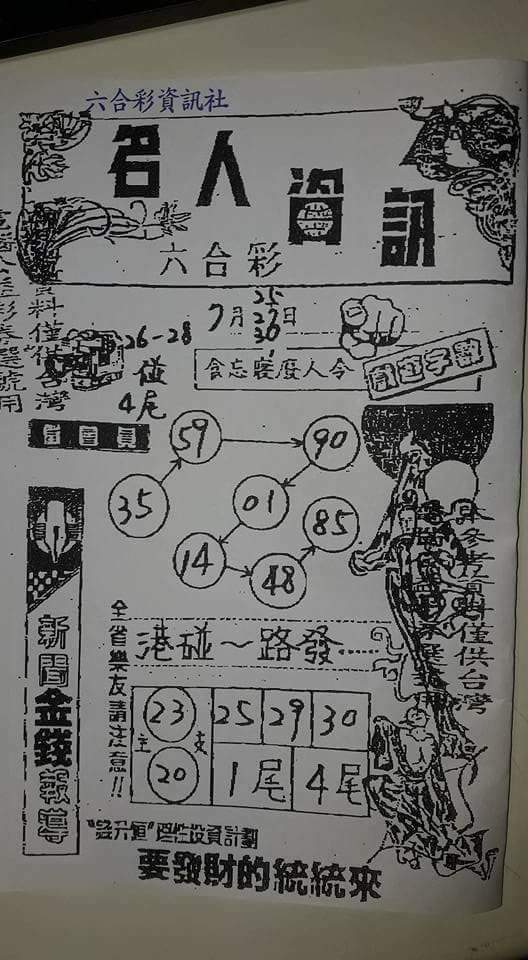 六合彩資訊社
名人資訊
六合彩
7月25日
27
30
26-28
碰
4尾
令人廢寢忘食
數字遊戲
貴會員
59
90
35
01
85
14
48
新聞金錢報導
全省樂友請注意!!
港碰~路發.....
23
主
20
支
25 29 30
1尾 4尾
要發財的統統來
本參考資料僅供台灣
資料僅供台灣